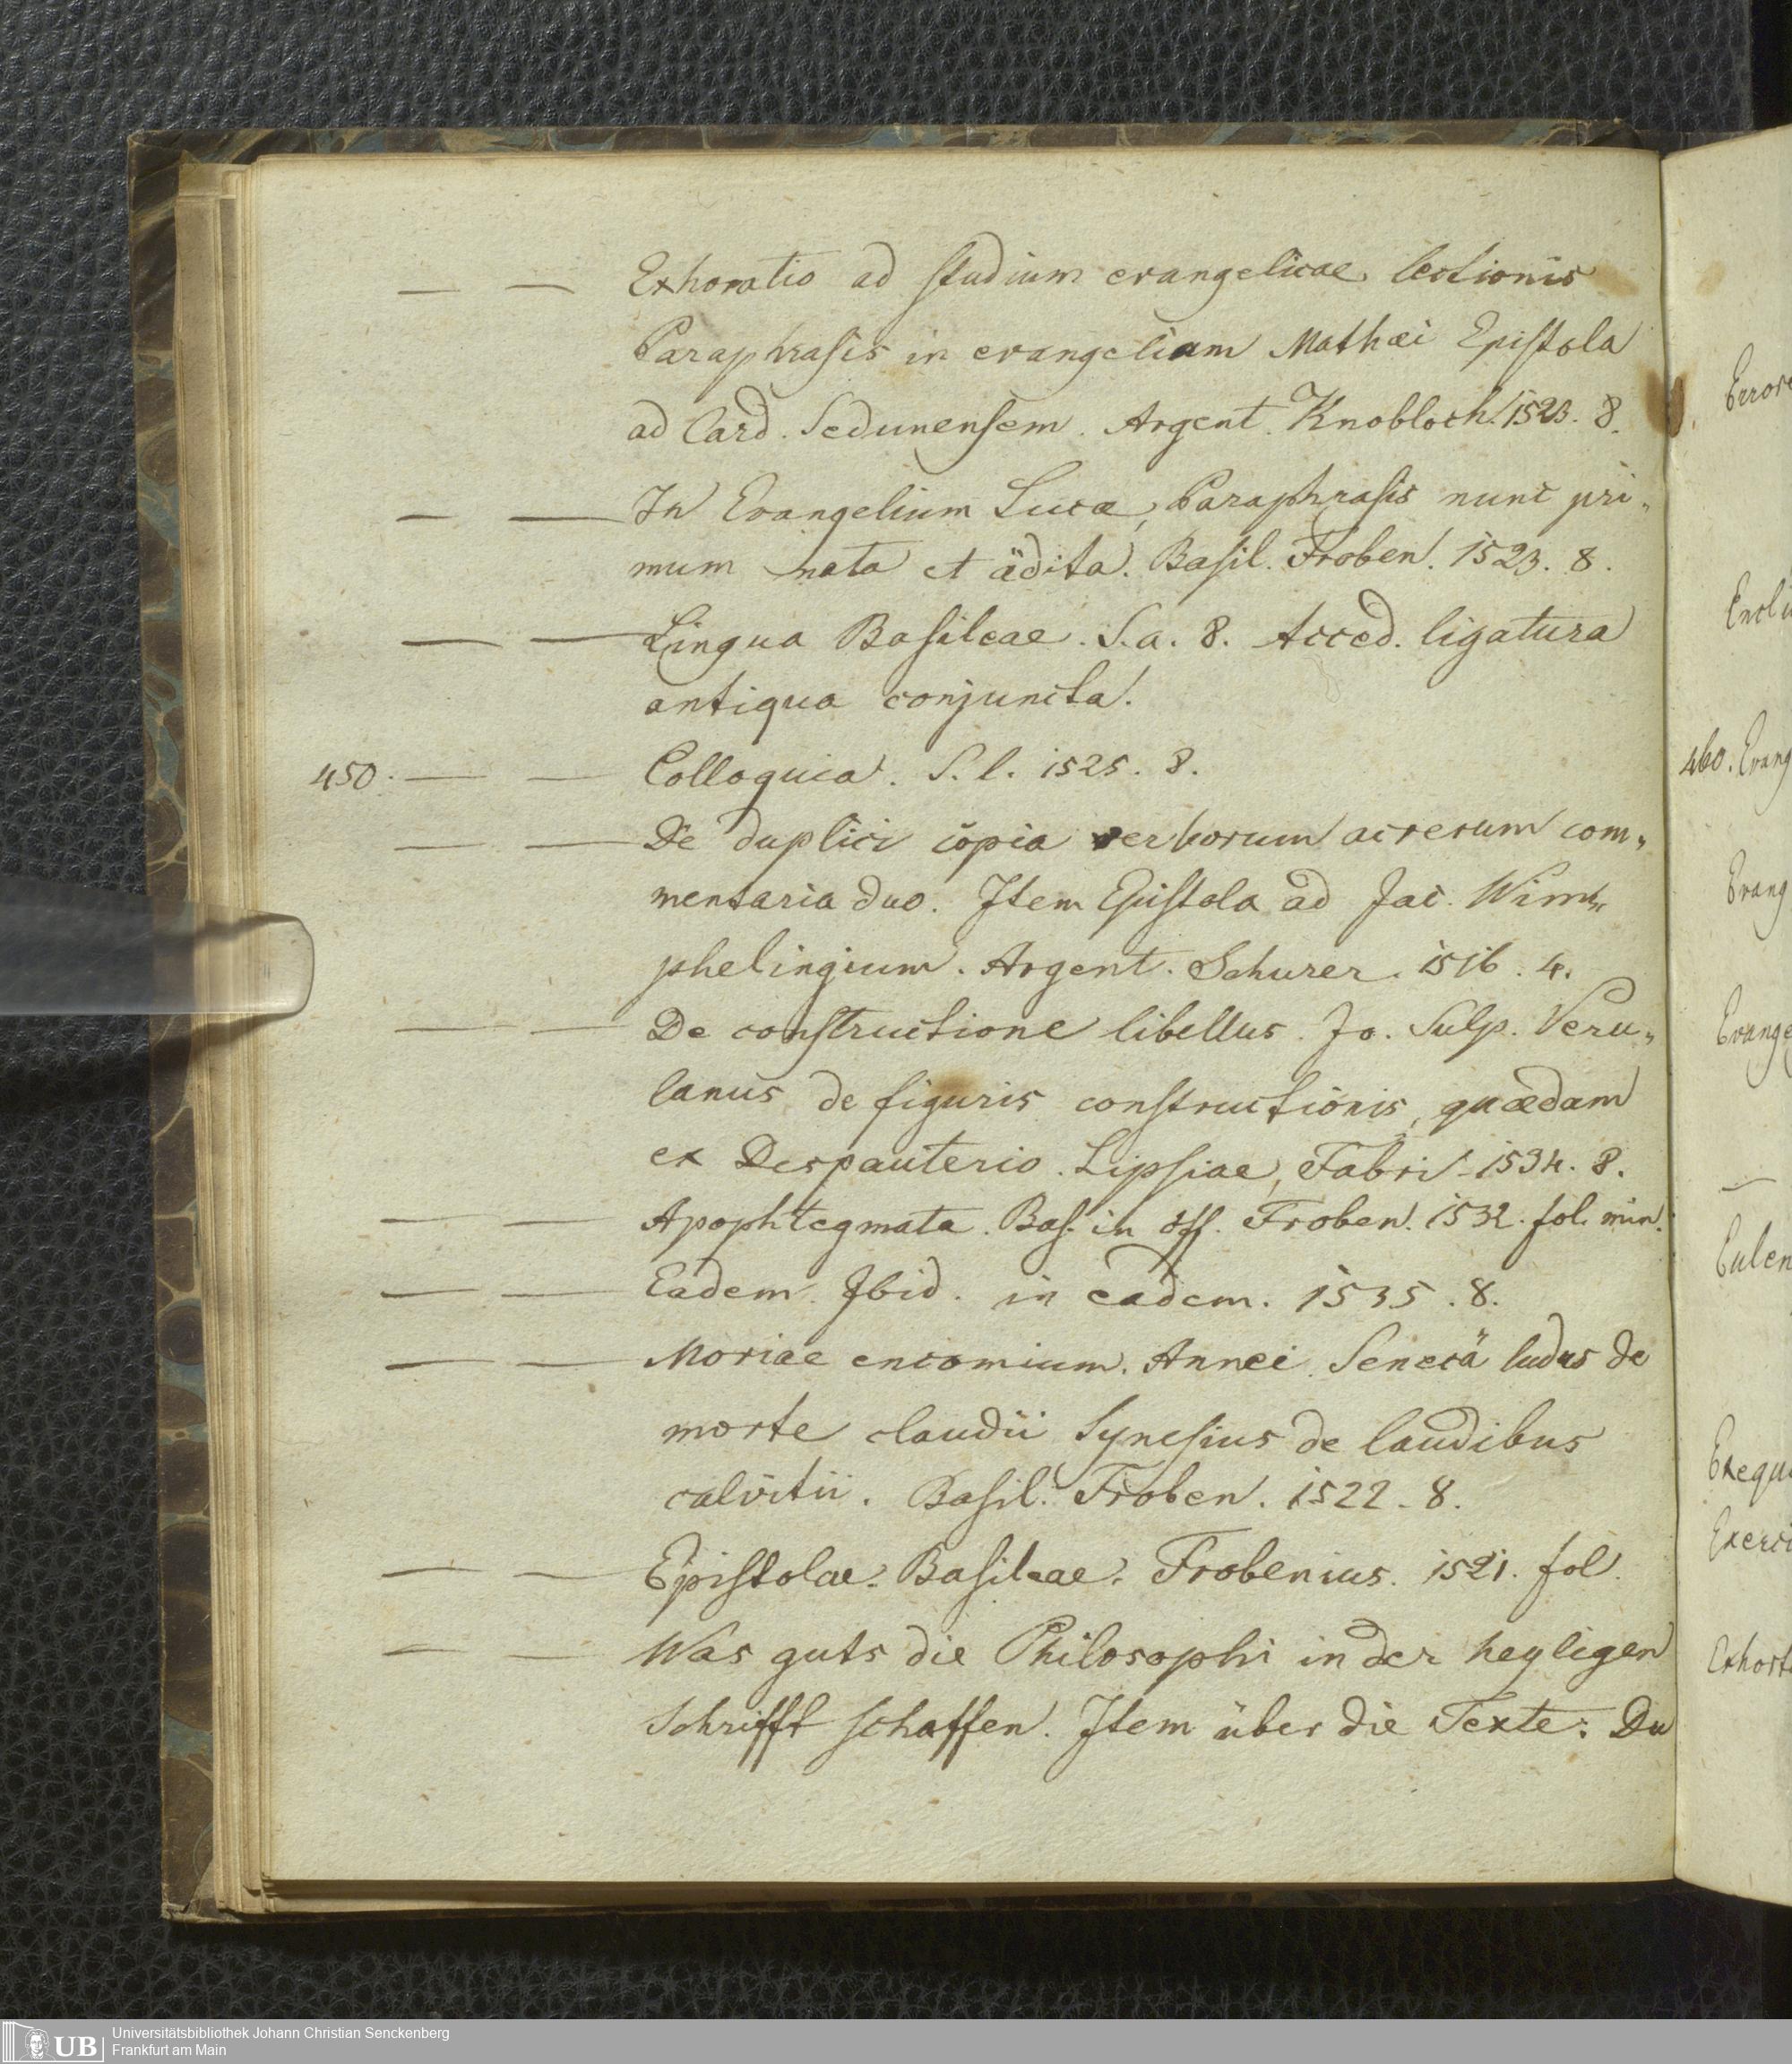 — — Exhoratio ad studium evangelicae lectionis
Paraphrasis in evangeliam Mathæi Epistola
ad Card. Sedunensem. Argent. Knobloch. 1523. 8.
— — In Evangelium Lucæ, Paraphrasis nunc pri„
mum nata et ädita. Basil. Froben. 1523. 8.
— — Lingua Basileae. S. a. 8. Acced. ligatura
antiqua conjuncta.
450. — — Colloquia. S. l. 1525. 8.
— — De duplici copia verborum ac rerum com„
mentaria duo. Item Epistola ad Jac. Wim„
phelingium. Argent. Schurer. 1516. 4.
— — De constructione libellus. Jo. Sulp. Veru„
lanus de figuris constructionis, quædam
ex Despauterio. Lipsiae, Fabri 1534. 8.
— — Apophtegmata. Bas. in off. Froben. 1532. fol. min.
— — Eadem. Ibid. in eadem. 1535. 8.
— — Moriae encomium. Annei Senecä ludus de
morte claudii Synesius de laudibus
calvitii. Basil. Froben. 1522. 8.
— — Epistolae. Basileae. Frobenius. 1521. fol.
— — Was guts die Philosophi in der heyligen
Schrifft schaffen. Item über die Texte: Du
460. Evang
Evang
Evange
Eulen
Exequ
Exerci
Exhort
UB
Universitätsbibliothek Johann Christian Senckenberg
Frankfurt am Main